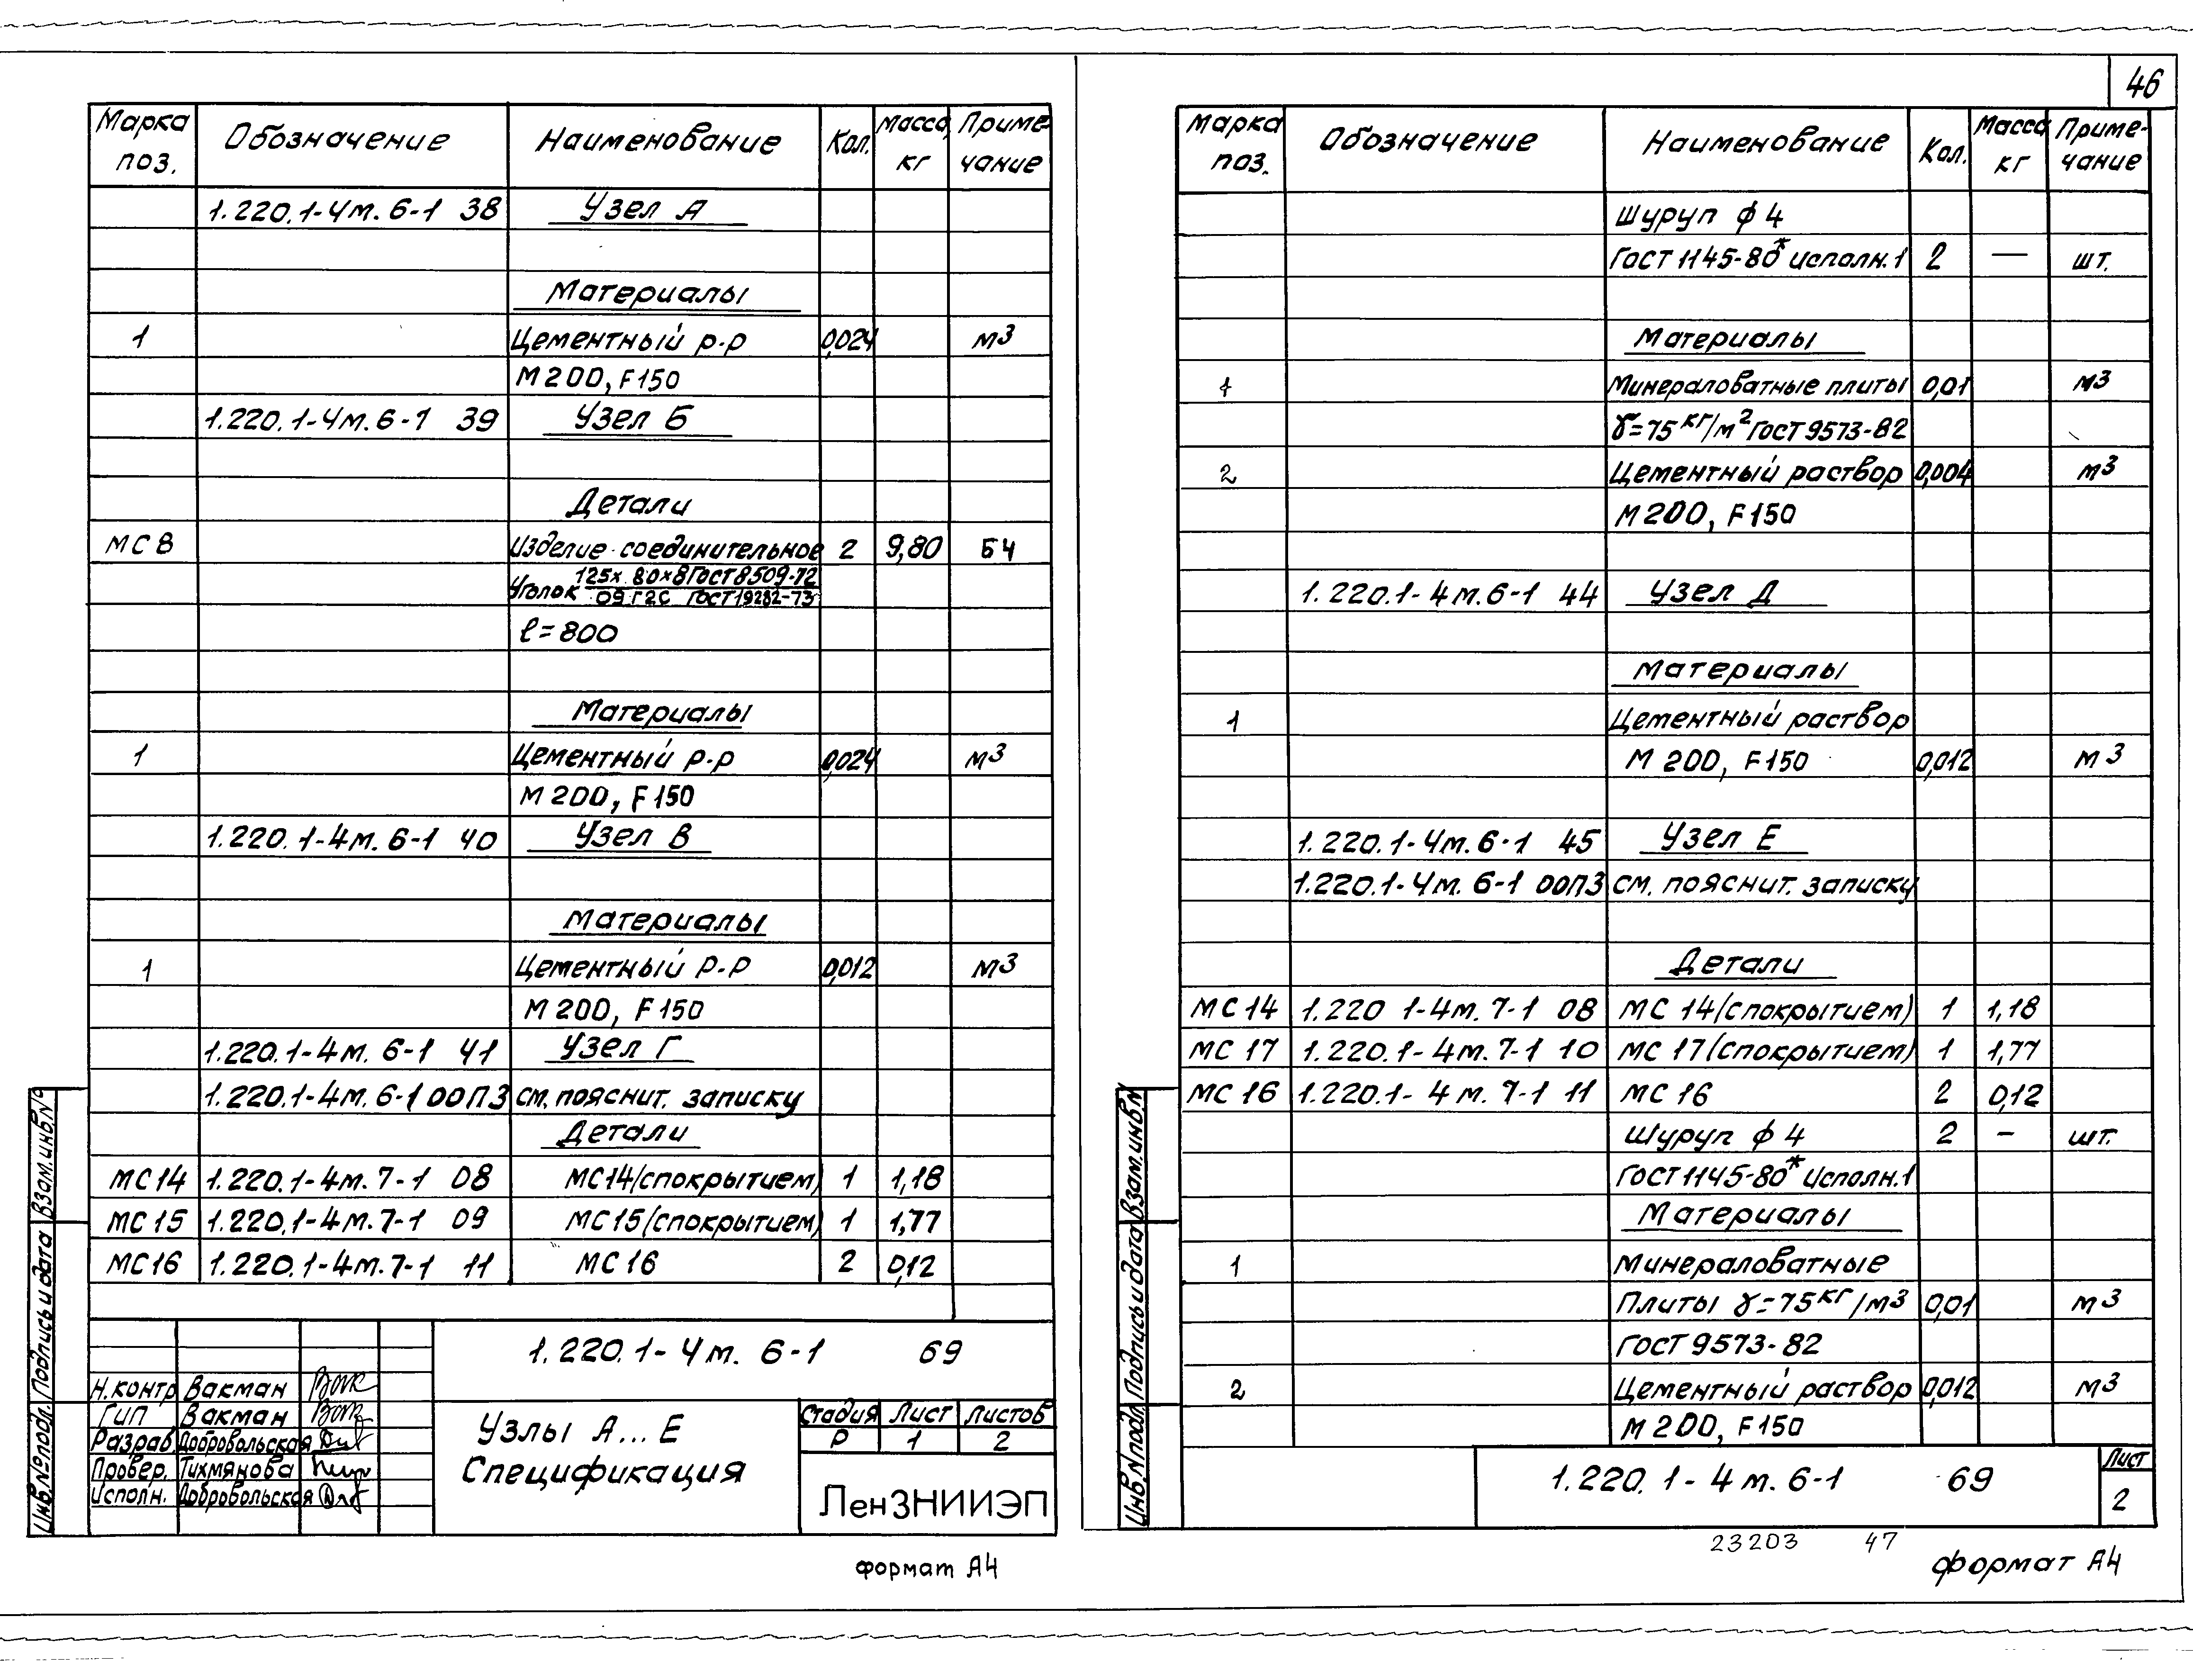 46
Марка поз. Обозначение Наименование Кол. Масса, кг Примечание
1.220.1-4м.6-1 38 Узел А
Материалы
1 Цементный р-р 0,024 м3
М200, F150
1.220.1-4м.6-1 39 Узел Б
Детали
МС8 Изделие соединительное 2 9,80 БЧ
Уголок 125х80х8 ГОСТ 8509-72
09Г2С ГОСТ 19282-73
ℓ=800
Материалы
1 Цементный р-р 0,024 м3
М200, F150
1.220.1-4м.6-1 40 Узел В
Материалы
1 Цементный р-р 0,012 м3
М200, F150
1.220.1-4м.6-1 41 Узел Г
1.220.1-4м.6-1 00ПЗ см. пояснит. записку
Детали
МС14 1.220.1-4м.7-1 08 МС14/спокрытием) 1 1,18
МС15 1.220.1-4м.7-1 09 МС15/спокрытием) 1 1,77
МС16 1.220.1-4м.7-1 11 МС16 2 0,12
1.220.1-4м.6-1 69
Н.контр Вакман
Гип Вакман
Разраб. Добровольская
Провер. Тихмянова
Исполн. Добровольская
Узлы А...Е
Спецификация
Стадия Лист Листов
Р 1 2
ЛенЗНИИЭП
Инв.№подл. Подпись и дата Взам.инв.№
формат А4
Марка поз. Обозначение Наименование Кол. Масса, кг Примечание
Шуруп ϕ4
ГОСТ 1145-80* исполн.1 2 — шт.
Материалы
1 Минераловатные плиты 0,01 м3
γ=75 кг/м2 ГОСТ 9573-82
2 Цементный раствор 0,004 м3
М200, F150
1.220.1-4м.6-1 44 Узел Д
Материалы
1 Цементный раствор
М200, F150 0,012 м3
1.220.1-4м.6-1 45 Узел Е
1.220.1-4м.6-1 00ПЗ см. пояснит. записку
Детали
МС14 1.220 1-4м.7-1 08 МС 14/спокрытием) 1 1,18
МС 17 1.220.1-4м.7-1 10 МС 17/спокрытием) 1 1,77
МС 16 1.220.1-4м.7-1 11 МС 16 2 0,12
Шуруп ϕ4 2 — шт.
ГОСТ 1145-80* Исполн.1
Материалы
1 Минераловатные
Плиты γ=75 кг/м3 0,01 м3
ГОСТ 9573-82
2 Цементный раствор 0,012 м3
М200, F150
1.220.1-4м.6-1 69
Лист
2
Инв.№подл. Подпись и дата Взам.инв.№
23203 47
формат А4